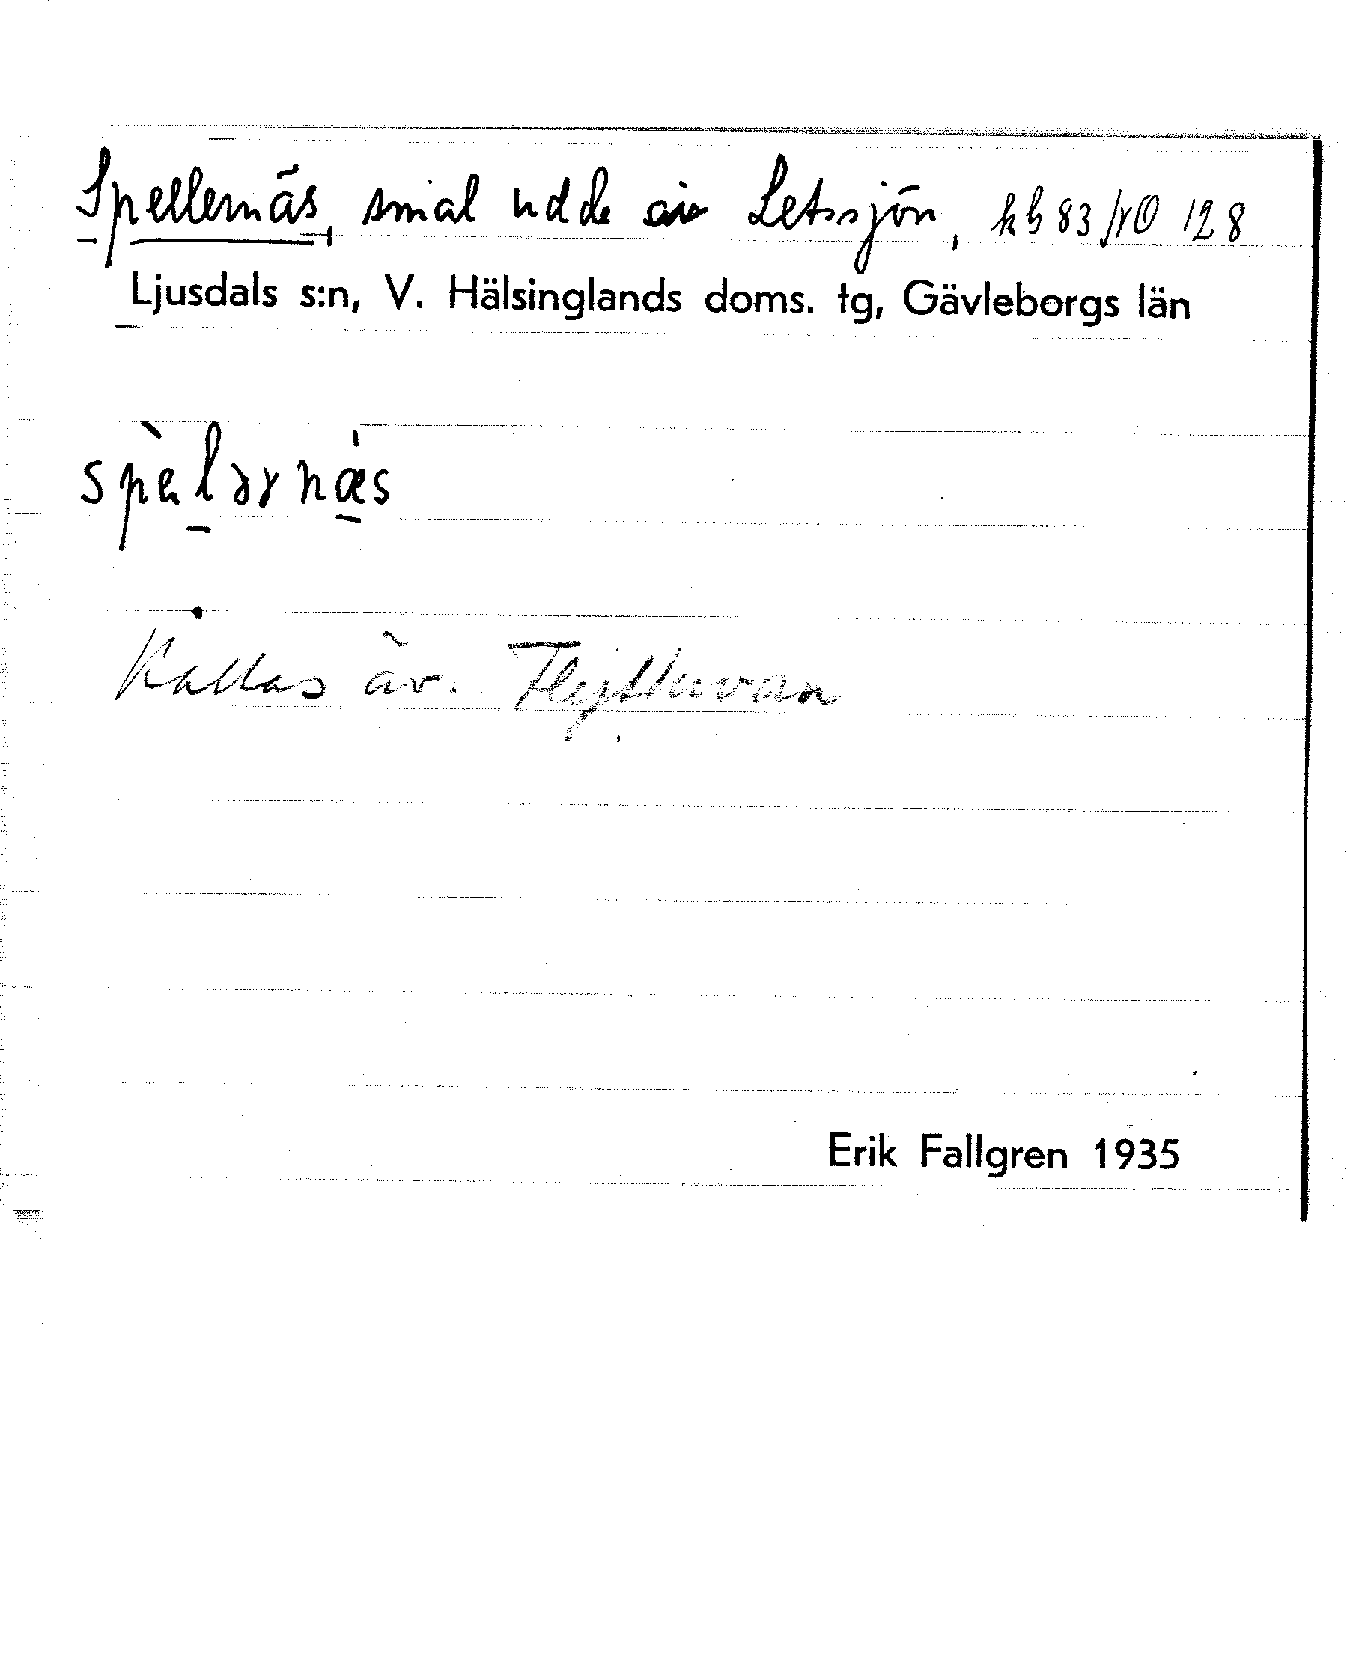 Spellernäs, smal udde av Letssjön, kb 83 NO 128
Ljusdals s:n, V. Hälsinglands doms. tg, Gävleborgs län
spèlərnæ̀s
Kallas äv.
Erik Fallgren 1935